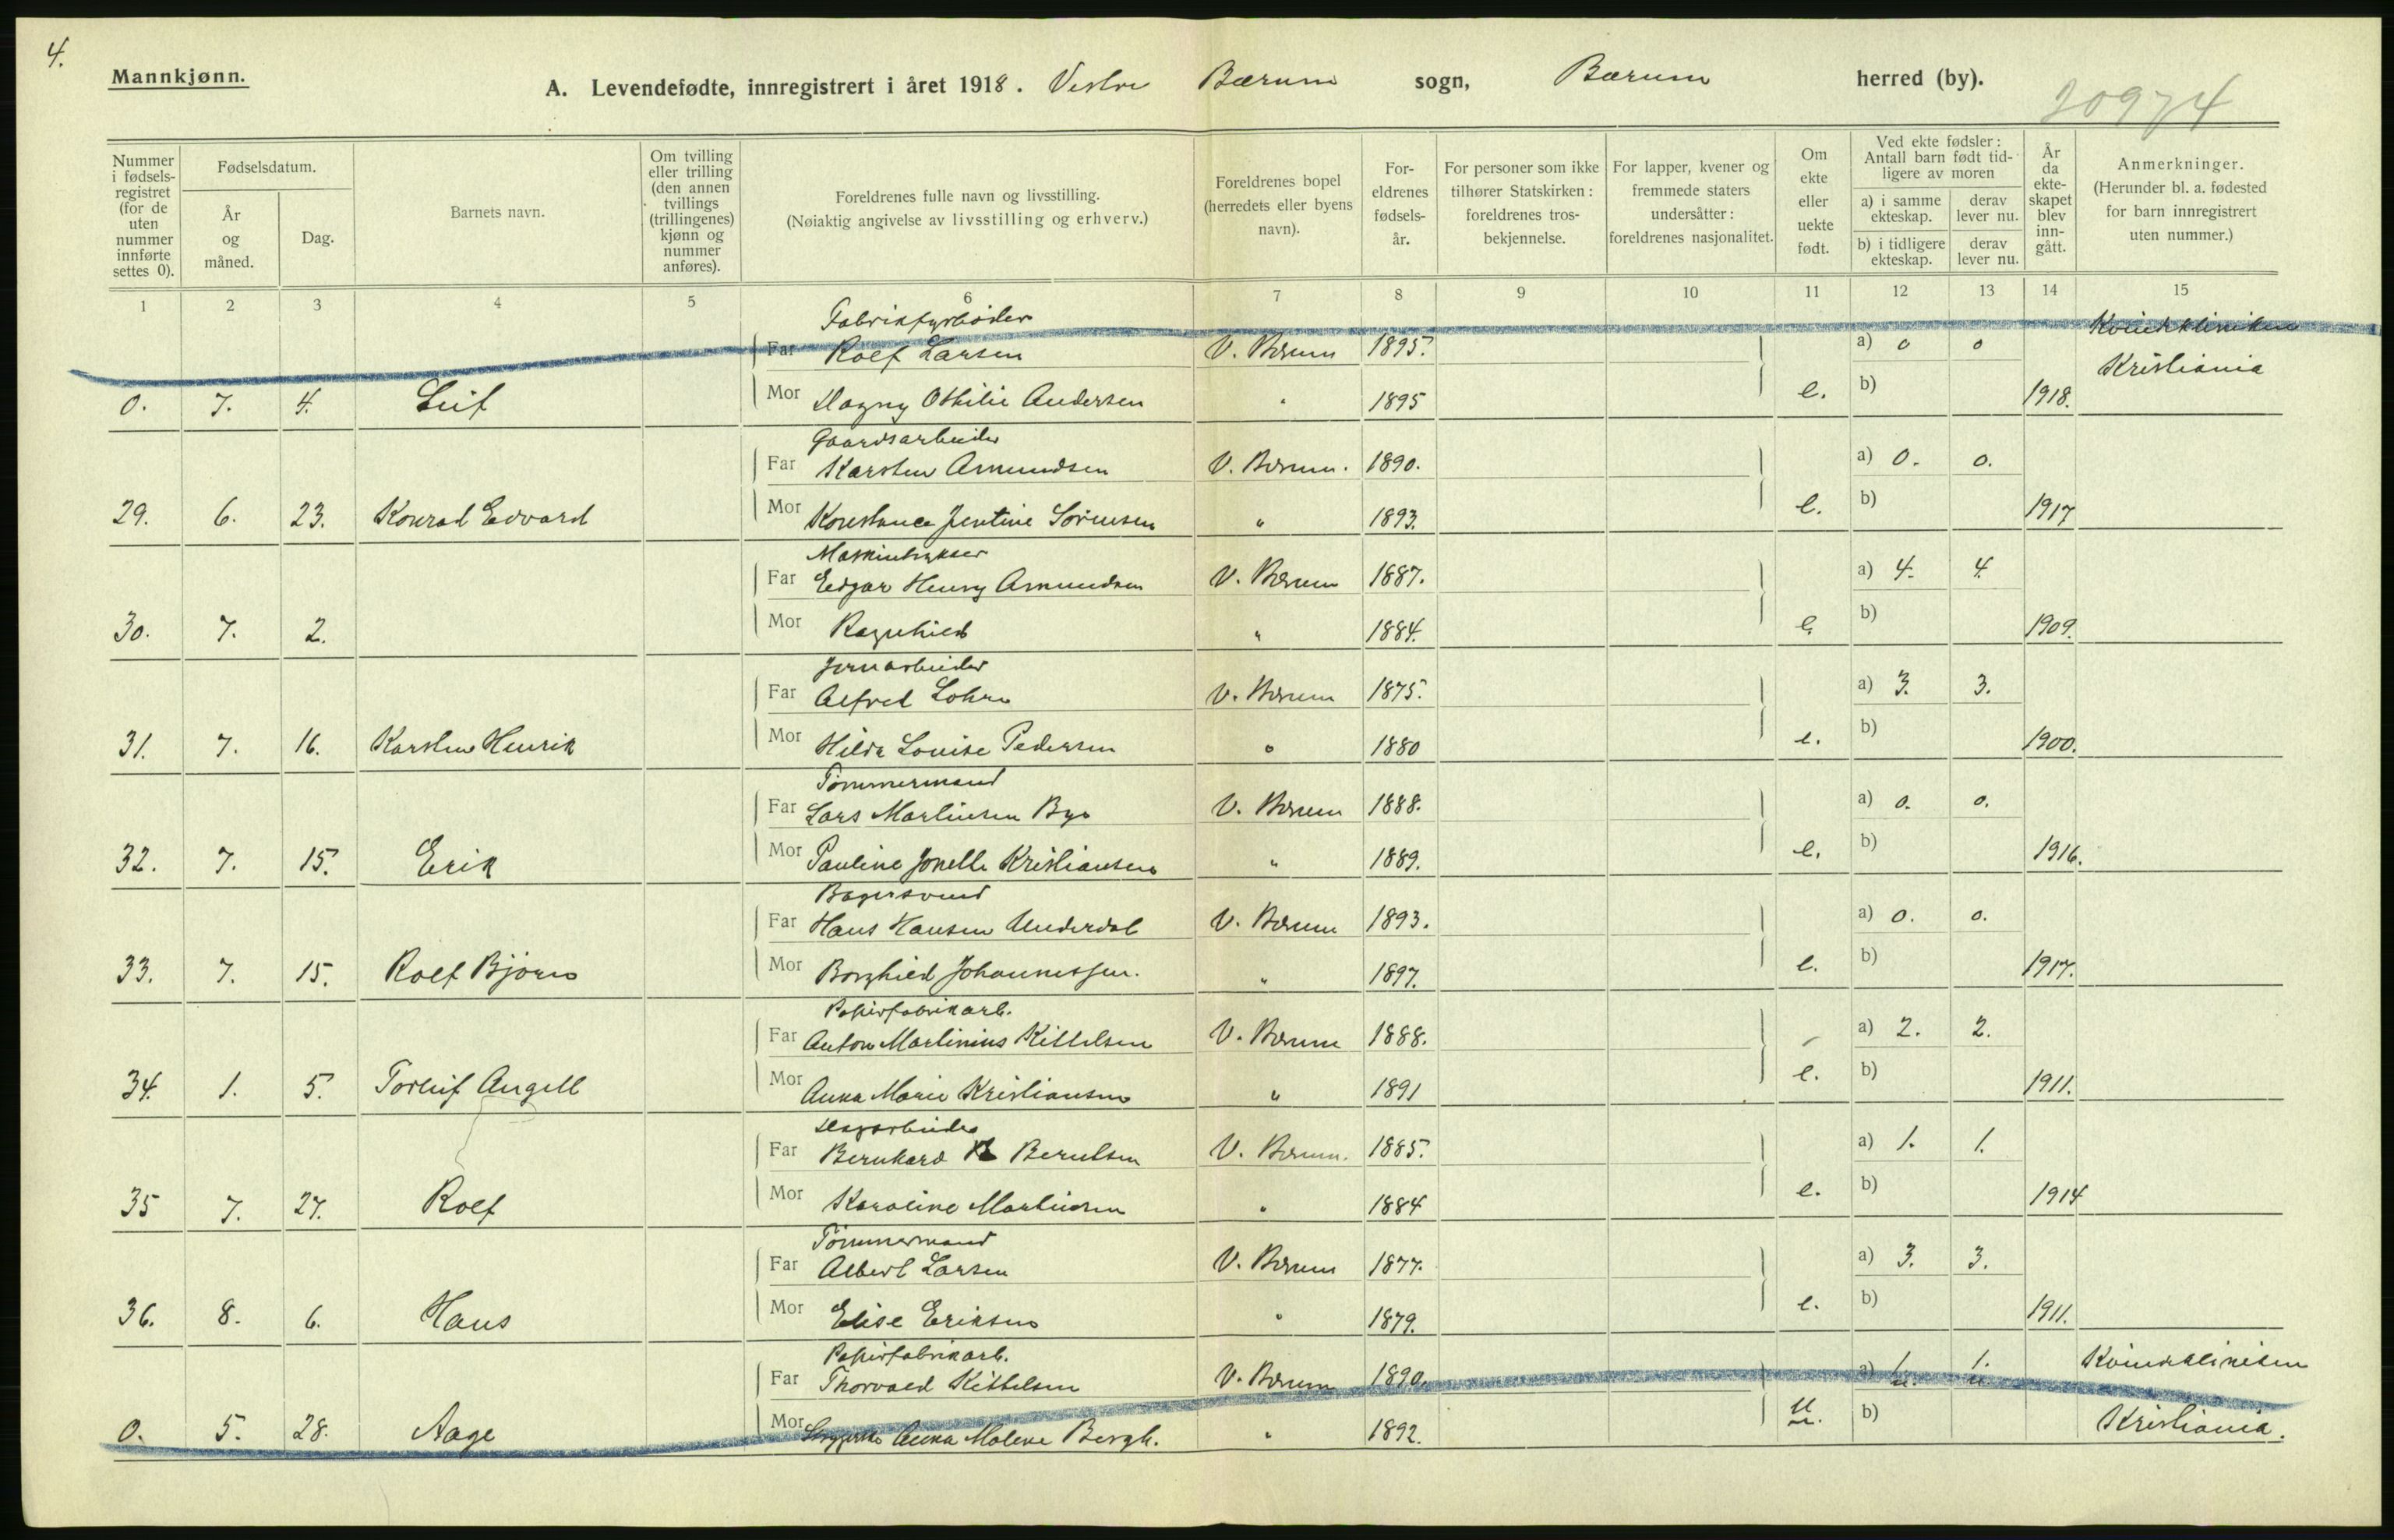 4.
Mannkjønn.
A. Levendefødte, innregistrert i året 1918. Vestre Bærum sogn, Bærum herred (by).
20974
Nummer i fødsels-registret (for de uten nummer innførte settes 0).
Fødselsdatum.
År og måned.
Dag.
Barnets navn.
Om tvilling eller trilling (den annen tvillings (trillingenes) kjønn og nummer anføres).
Foreldrenes fulle navn og livsstilling.
(Nøiaktig angivelse av livsstilling og erhverv.)
Foreldrenes bopel (herredets eller byens navn).
For-eldrenes fødsels-år.
For personer som ikke tilhører Statskirken: foreldrenes tros-bekjennelse.
For lapper, kvener og fremmede staters undersåtter: foreldrenes nasjonalitet.
Om ekte eller uekte født.
Ved ekte fødsler: Antall barn født tid-ligere av moren
a) i samme ekteskap.
derav lever nu.
b) i tidligere ekteskap.
derav lever nu.
År da ekte-skapet blev inn-gått.
Anmerkninger.
(Herunder bl. a. fødested for barn innregistrert uten nummer.)
1 2 3 4 5 6 7 8 9 10 11 12 13 14 15
Fabrikfyrbøder Kvindeklinikken
Far Rolf Larsen V. Bærum 1895. a) 0 0 Kristiania
0. 7. 4. Leif Mor Dagny Othilie Andersen " 1895 e. b) 1918.
Gaardsarbeider
Far Karsten Amundsen V. Bærum. 1890. a) 0. 0.
29. 6. 23. Konrad Edvard Mor Konstance Jentine Sørensen " 1893. e. b) 1917
Maskintrykker
Far Edgar Henry Amundsen V. Bærum 1887. a) 4. 4.
30. 7. 2. Mor Ragnhild " 1884. e. b) 1909.
Jernarbeider
Far Alfred Lohne V. Bærum 1875. a) 3. 3.
31. 7. 16. Karsten Henrik Mor Hilda Louise Pedersen " 1880 e. b) 1900.
Tømmermand
Far Lars Martinsen Bye V. Bærum 1888. a) 0. 0.
32. 7. 15. Erik Mor Pauline Jonette Kristiansen " 1889. e. b) 1916.
Bagersvend
Far Hans Hansen Underdal V. Bærum 1893. a) 0. 0.
33. 7. 15. Rolf Bjørn Mor Borghild Johannessen. " 1897. e. b) 1917.
Papirfabrikarb.
Far Anton Martinius Kittelsen V. Bærum 1888. a) 2. 2.
34. 1. 5. Torleif Angell Mor Anna Marie Kristiansen " 1891 e. b) 1911.
Dagarbeider
Far Bernhard Berntsen V. Bærum. 1885. a) 1. 1.
35 7. 27. Rolf Mor Karoline Martinsen " 1884 e. b) 1914
Tømmermand
Far Albert Larsen V. Bærum 1877. a) 3. 3.
36. 8. 6. Hans Mor Elise Eriksen " 1879. e. b) 1911.
Papirfabrikarb. Kvindeklinikken
Far Thorvald Kittelsen V. Bærum 1890. a) 1. 1.
0. 5. 28. Aage Mor Anna Malene Bergh. " 1892. u. b) Kristiania.